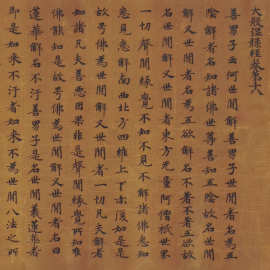 大般涅槃經卷第十八
善男子云何世間解善男子世間者名為五
陰解者名知諸佛世尊善知五陰故名世間
解又世間者名為五欲解名不著不著五欲故
名世間解又世間者東方无量阿僧祇世界
一切聲聞緣覺不知不見不解諸佛悉知
悉見悉解南西北方四維上下亦復如是是
故号佛為世間解又世間者一切凡夫解者
知諸凡夫善惡因果非是聲聞緣覺所知唯
佛能知是故号佛為世間解又世間者名曰
蓮華解名不汙善男子是名世間義蓮華者
即是如來不汙者如來不為世間八法之所